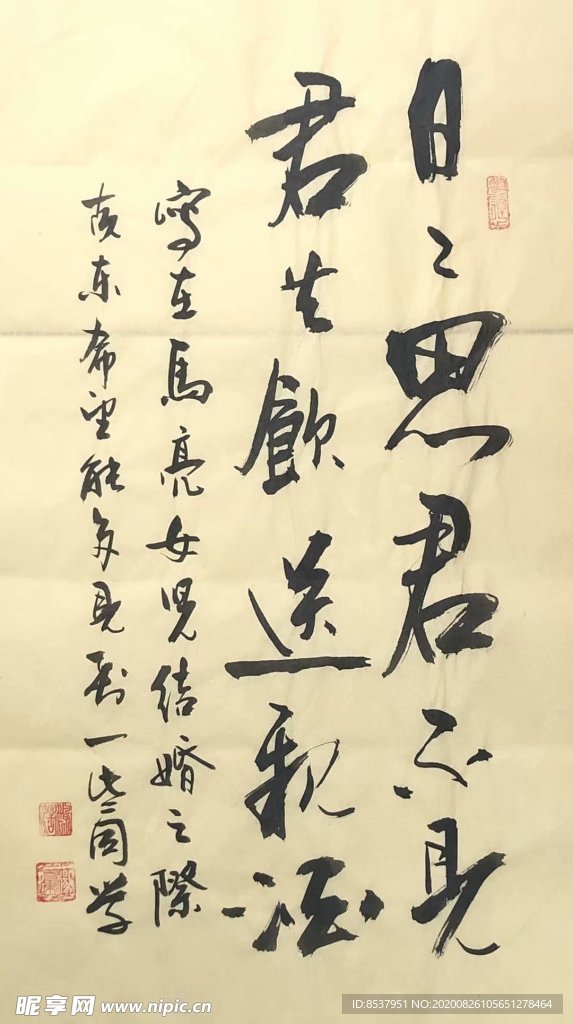 日々思君不见
君共飲送親酒
寫在馬亮女児结婚之際
东希望能多見到一些同学
昵享网 www.nipic.cn
ID:8537951 NO:20200826105651278464